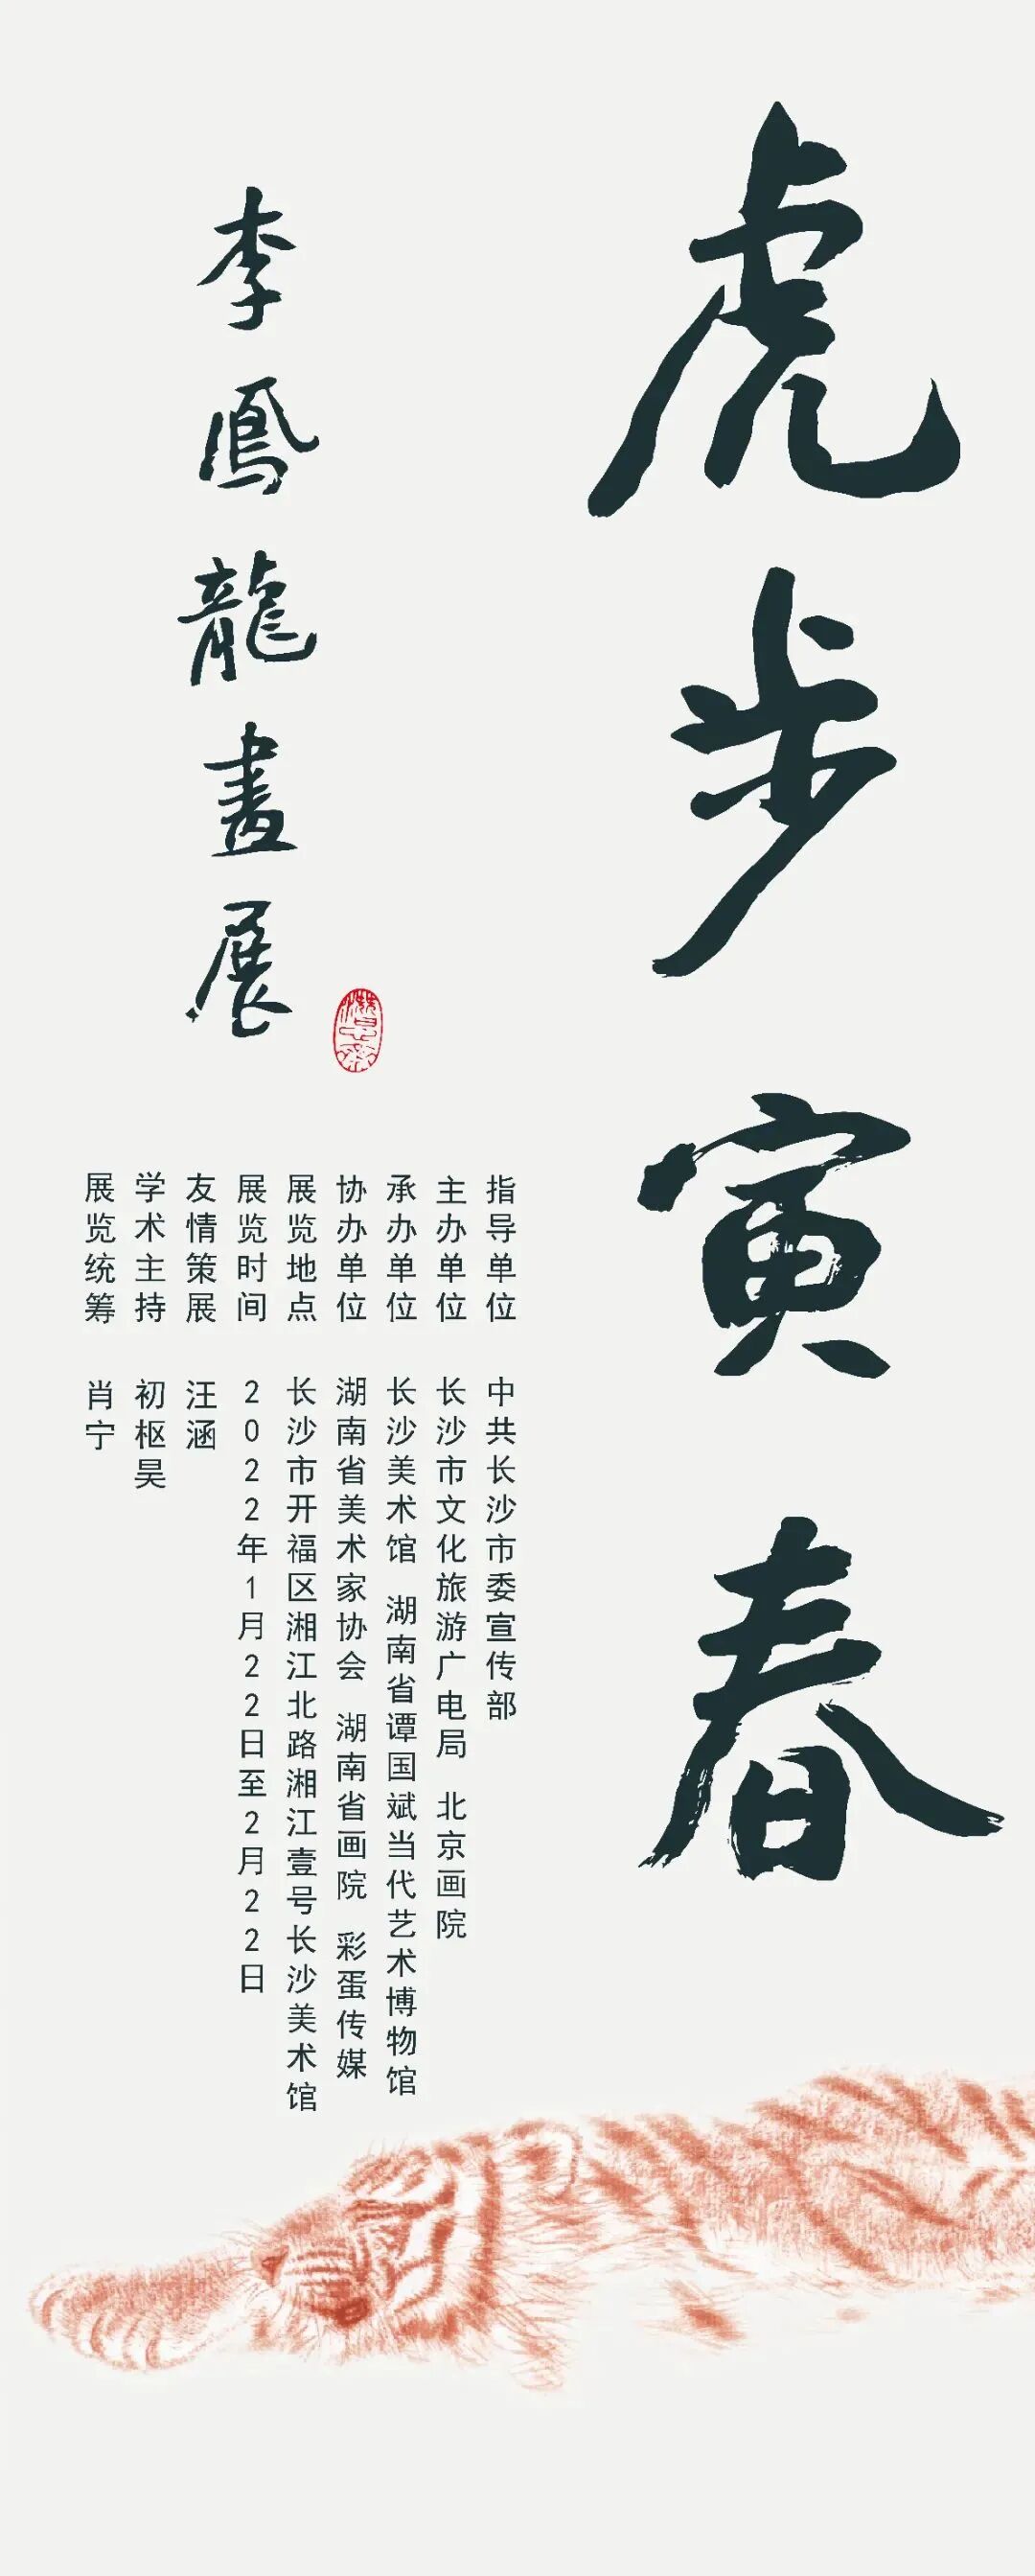 虎步寅春
李鳳龍畫展
指导单位 中共长沙市委宣传部
主办单位 长沙市文化旅游广电局 北京画院
承办单位 长沙美术馆 湖南省谭国斌当代艺术博物馆
协办单位 湖南省美术家协会 湖南省画院 彩蛋传媒
展览地点 长沙市开福区湘江北路湘江壹号长沙美术馆
展览时间 2022年1月22日至2月22日
友情策展 汪涵
学术主持 初枢昊
展览统筹 肖宁